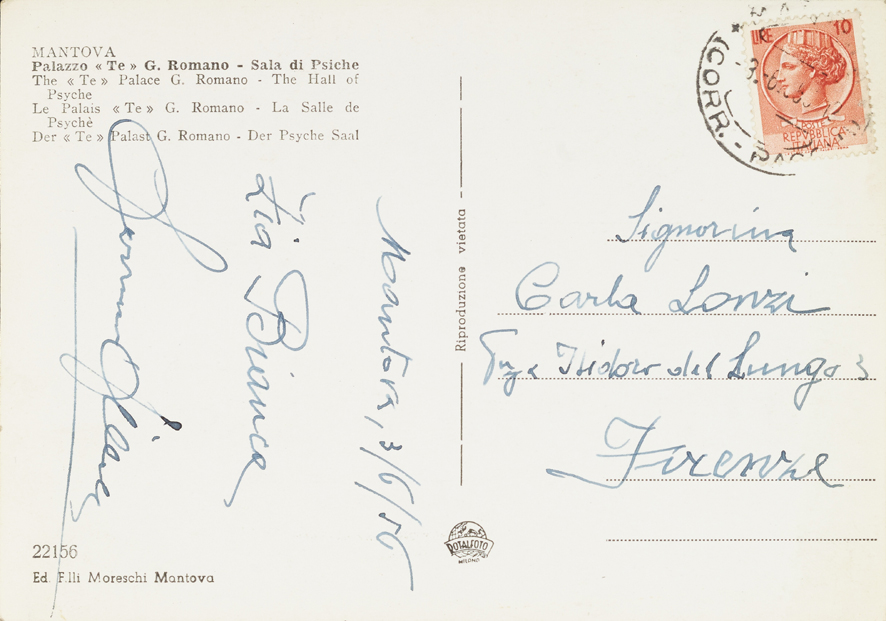 MANTOVA
Palazzo « Te » G. Romano - Sala di Psiche
The « Te » Palace G. Romano - The Hall of
Psyche
Le Palais « Te » G. Romano - La Salle de
Psychè
Der « Te » Palast G. Romano - Der Psyche Saal
Mantova, 3/6/56
Zia Bianca
22156
Ed. F.lli Moreschi Mantova
Riproduzione vietata
ROTALFOTO
MILANO
(CORR. -
LIRE 10
REPVBBLICA
ITALIANA
Signorina
Carla Lonzi
Isidoro del Lungo 3
Firenze